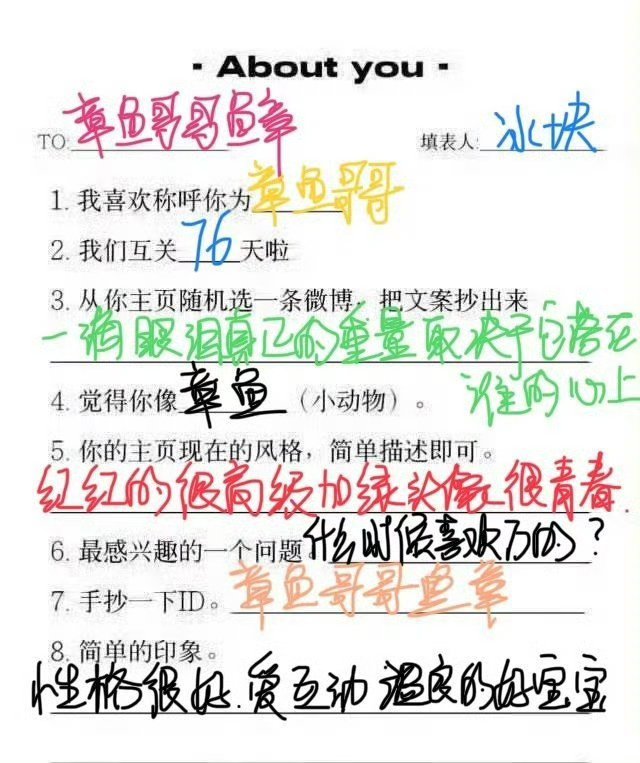 · About you ·
TO: 章鱼哥哥鱼章 填表人: 冰块
1. 我喜欢称呼你为 章鱼哥哥
2. 我们互关 76 天啦
3. 从你主页随机选一条微博，把文案抄出来
一滴眼泪真正的重量取决于它落在
谁的心上
4. 觉得你像 章鱼 （小动物）。
5. 你的主页现在的风格，简单描述即可。
红红的很高级加绿头像很青春.
6. 最感兴趣的一个问题 什么时候喜欢 的?
7. 手抄一下ID。 章鱼哥哥鱼章
8. 简单的印象。
性格很好.爱互动 温良的好宝宝